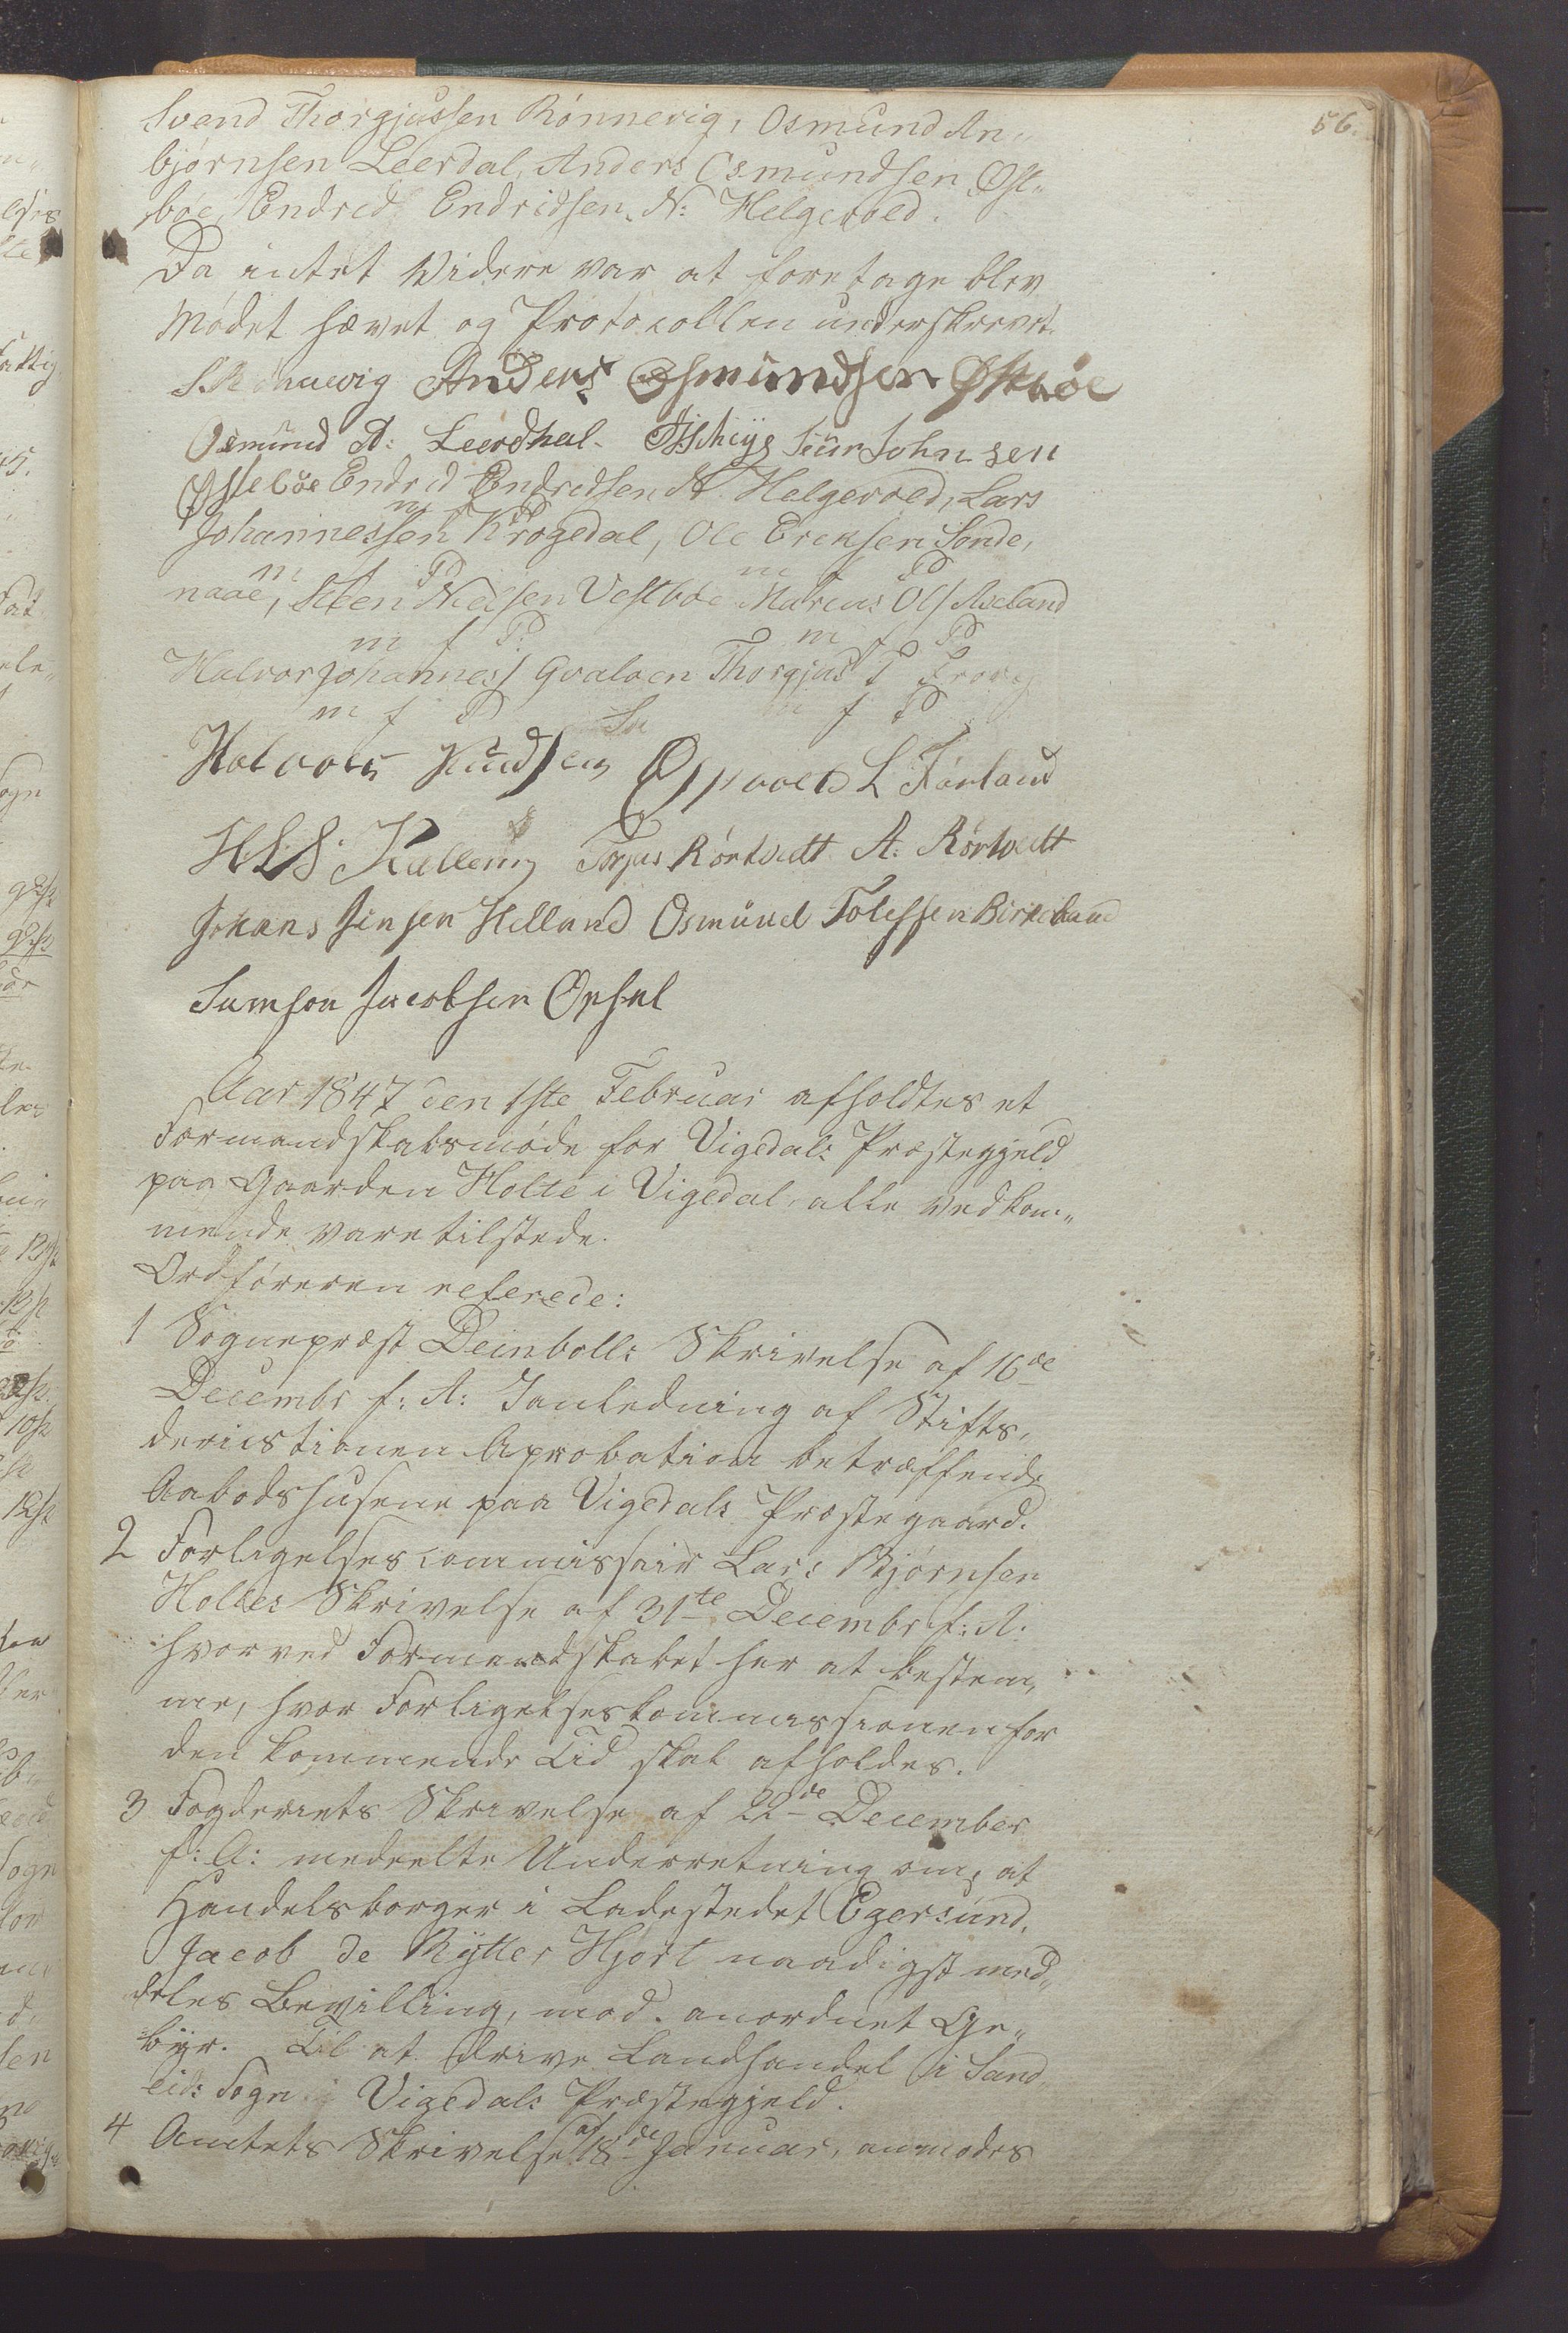 56.
Svend Thorgjussen Rønnevig, Osmund An„
bjørnsen Leerdal, Anders Osmundsen Øst„
bøe, Endred Endridsen N: Helgevold.
Da intet Widere var at foretage blev
Mødet hævet og Protocollen underskrevet.
Anders Osmundsen Østbøe
Osmund A: Leerdhal. Siur Johnsen
Østebøe Endred Endredsen N. Helgevold, Lars
Johannessen Krogedal, Ole Ereksen Sonde,
m f P m f P
naae, Steen Nielsen Vestbøe Marcus Ols Aseland
m f P: m f P
Halvor Johanness Qvaloen Thorgjus T
m f P f P
Halvors Knudsen Opvold L Førland
H L S Kalleng Torjus Rørtvedt A: Rørtvedt
Johans Jensen Helland Osmund Tolessen Birkeland
Samson Jacobsen Opsal
Aar 1847 den 1ste Februar afholdtes et
Formandskabsmøde for Vigedals Præstegjeld
paa Gaarden Holte i Vigedal, alle vedkom„
mende vare tilstede.
Ordføreren referede:
1 Sognepræst Deinbolls Skrivelse af 16de
Decembr f: A: Ianledning af Stifts,
derictionen Aprobation betræffende
Aabodshusene paa Vigedals Præstegaard.
2 Forligelsescommissair Lars Bjørnsen
Holtes Skrivelse af 31te Decembr f: A:
hvorved Formandskabet har at bestem,
me, hvor Forligelseskommissionen for
den kommende Tid skal afholdes.
3 Fogderiets Skrivelse af 22de December
f: A: meddelte Underretning om, at
Handelsborger i Ladestedet Egersund,
Jacob de Rytter Hjort naadigst med„
deles Bevilling, mod anordnet Ge„
byr. Til at drive Landhandel i Sand
eids Sogn i Vigedals Præstegjeld.
4 Amtets Skrivelse af 18de Januar, anmodes